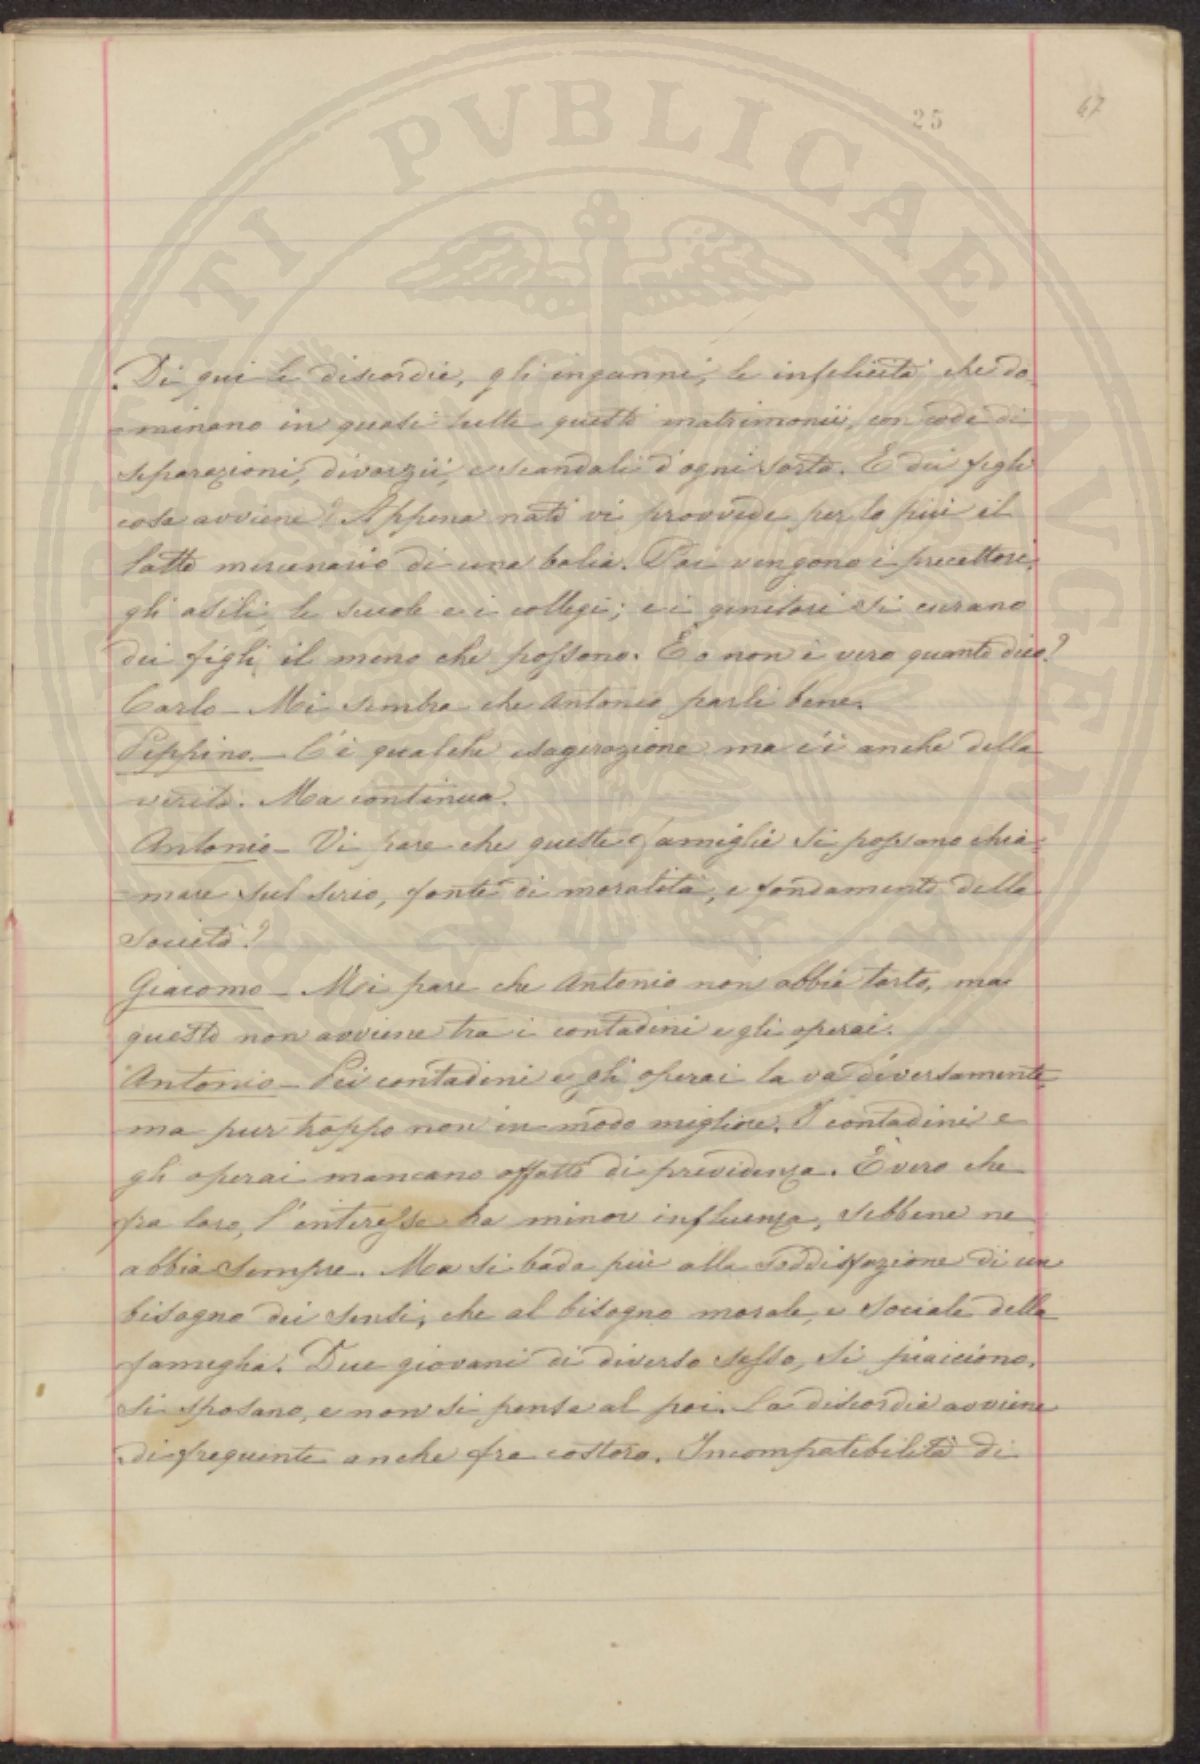 25
47
Di qui le discordie, gl'inganni, le infelicità che do-
minano in quasi tutti questi matrimonii, con code di
separazioni, divorzii, e scandali d'ogni sorta. E dei figli
cosa avviene? Appena nati vi provvede per lo più il
latte mercenario di una balia. Poi vengono i precettori,
gli asili, le scuole e i collegi; e i genitori si curano
dei figli il meno che possono. È o non è vero quanto dico?
Carlo - Mi sembra che Antonio parli bene.
Peppino. - C'è qualche esagerazione ma c'è anche della
verità. Ma continua.
Antonio - Vi pare che queste famiglie si possano chia-
mare sul serio, fonte di moralità, e fondamento della
società?
Giacomo - Mi pare che Antonio non abbia torto, ma
questo non avviene tra i contadini e gli operai.
Antonio - Pei contadini e gli operai la va diversamente,
ma pur troppo non in modo migliore. I contadini e
gli operai mancano affatto di previdenza. È vero che
fra loro, l'interesse ha minor influenza, sebbene ne
abbia sempre. Ma si bada più alla soddisfazione di un
bisogno dei sensi, che al bisogno morale, e sociale della
famiglia. Due giovani di diverso sesso, si piacciono,
si sposano, e non si pensa al poi. La discordia avviene
di frequente anche fra costoro. Incompatibilità di